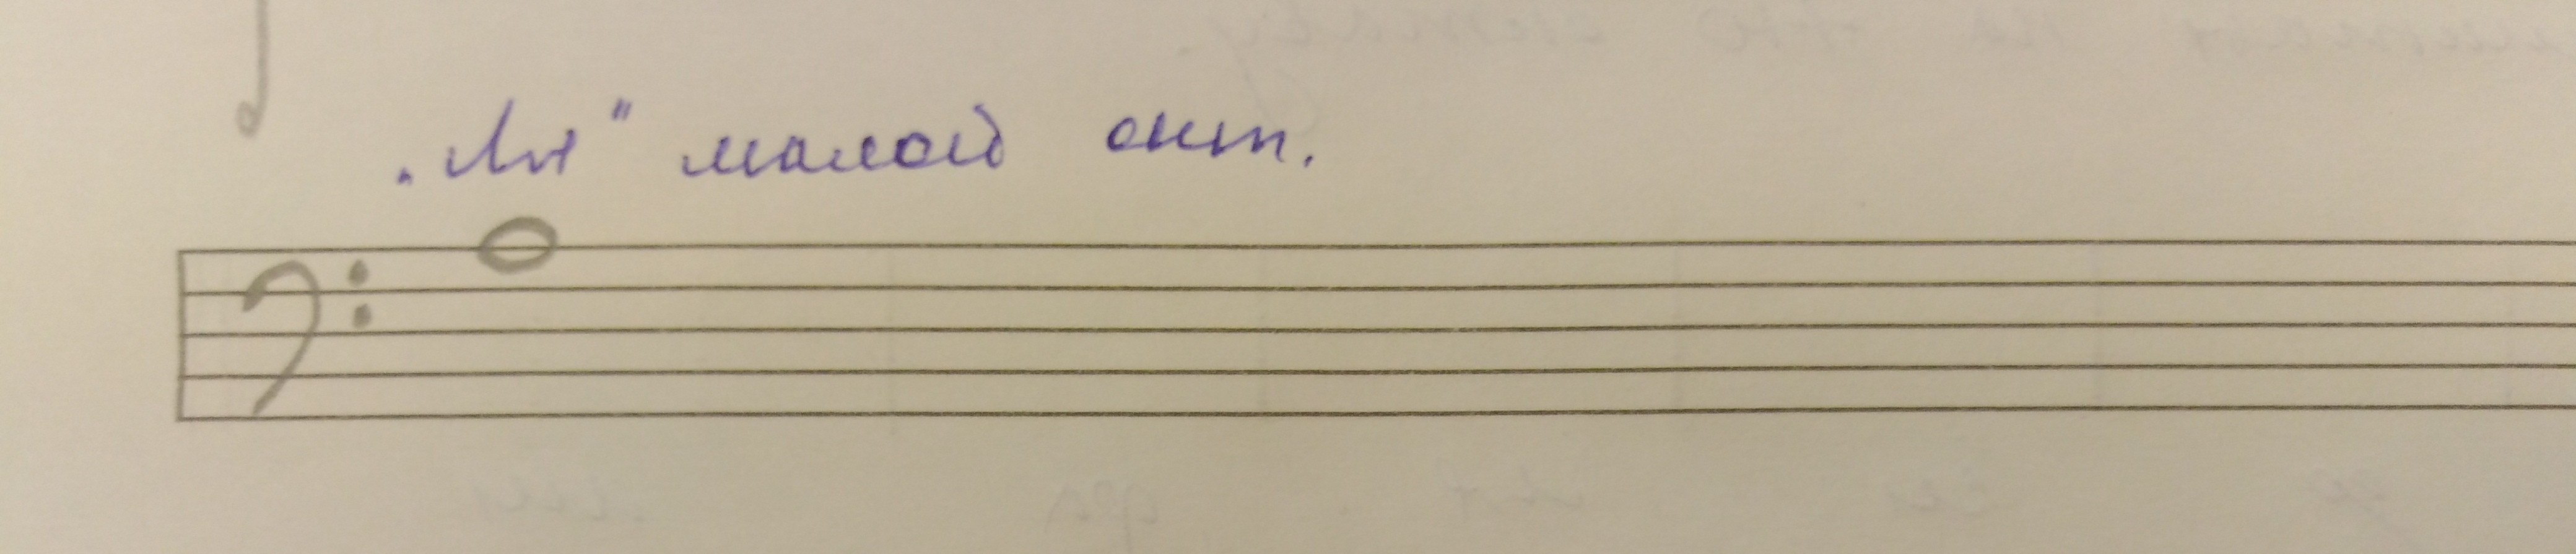 „Ля" малой окт.